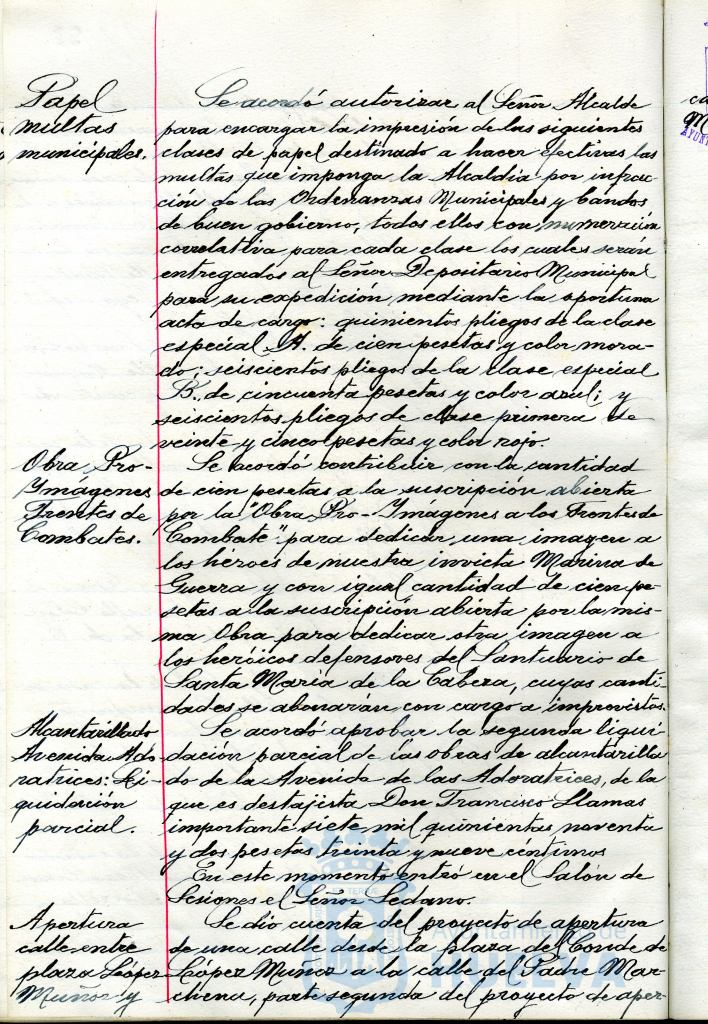 Papel
multas
municipales.
Se acordó autorizar al Señor Alcalde
para encargar la impresión de las siguientes
clases de papel destinado a hacer efectivas las
multas que imponga la Alcaldía por infrac-
ción de las Ordenanzas Municipales y bandos
de buen gobierno, todos ellos con numeración
correlativa para cada clase los cuales serán
entregados al Señor Depositario Municipal
para su expedición mediante la oportuna
acta de cargo: quinientos pliegos de la clase
especial A. de cien pesetas y color mora-
do; seiscientos pliegos de la clase especial
B. de cincuenta pesetas y color azul; y
seiscientos pliegos de clase primera de
veinte y cinco pesetas y color rojo.
Obra Pro-
Imágenes
Frentes de
Combates.
Se acordó contribuir con la cantidad
de cien pesetas a la suscripción abierta
por la "Obra Pro-Imágenes a los Frentes de
Combate" para dedicar una imagen a
los héroes de nuestra invicta Marina de
Guerra y con igual cantidad de cien pe-
setas a la suscripción abierta por la mis-
ma Obra para dedicar otra imagen a
los heróicos defensores del Santuario de
Santa María de la Cabeza, cuyas canti-
dades se abonarán con cargo a imprevistos.
Alcantarillado
Avenida Ado
ratrices: Li-
quidación
parcial.
Se acordó aprobar la segunda liqui-
dación parcial de las obras de alcantarilla
do de la Avenida de las Adoratrices, de la
que es destajista Don Francisco Llamas
importante siete mil quinientas noventa
y dos pesetas treinta y nueve céntimos
En este momento entró en el Salón de
Sesiones el Señor Sedano.
Apertura
calle entre
plaza López
Muñoz y
Se dió cuenta del proyecto de apertura
de una calle desde la plaza del Conde de
López Muñoz a la calle del Padre Mar-
chena, parte segunda del proyecto de aper-
Ayuntamiento de
HUELVA